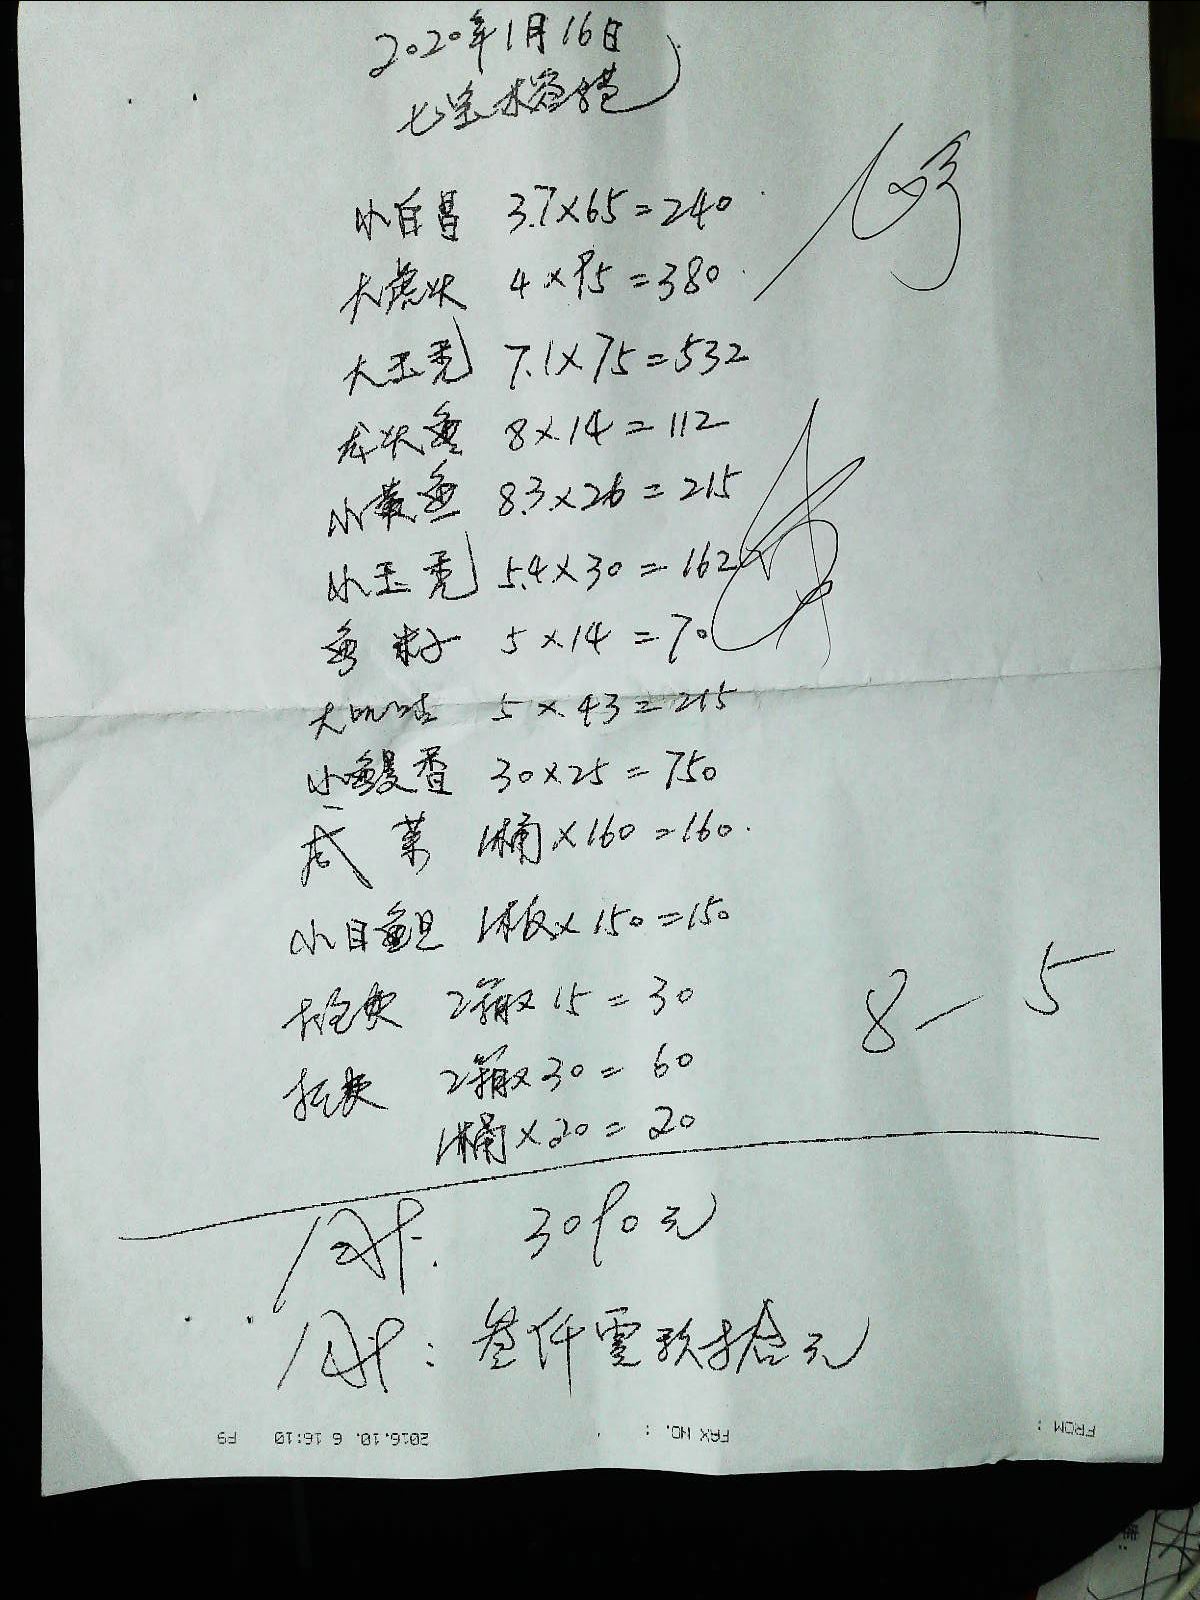 2020年1月16日
七宝
小白昌 3.7×65=240
大虎头 4×95=380
大玉秃 7.1×75=532
龙头鱼 8×14=112
小黄鱼 8.3×26=215
小玉秃 5.4×30=162
鱼籽 5×14=70
大 5×43=215
小鳗香 30×25=750
咸菜 1桶×160=160
小目鱼旦 1板×150=150
2箱×15=30
2箱×30=60
1桶×20=20
8-5
合计: 3090元
合计: 叁仟零玖拾元
FROM :
FAX NO. :
2016.10. 6 16:10 P9